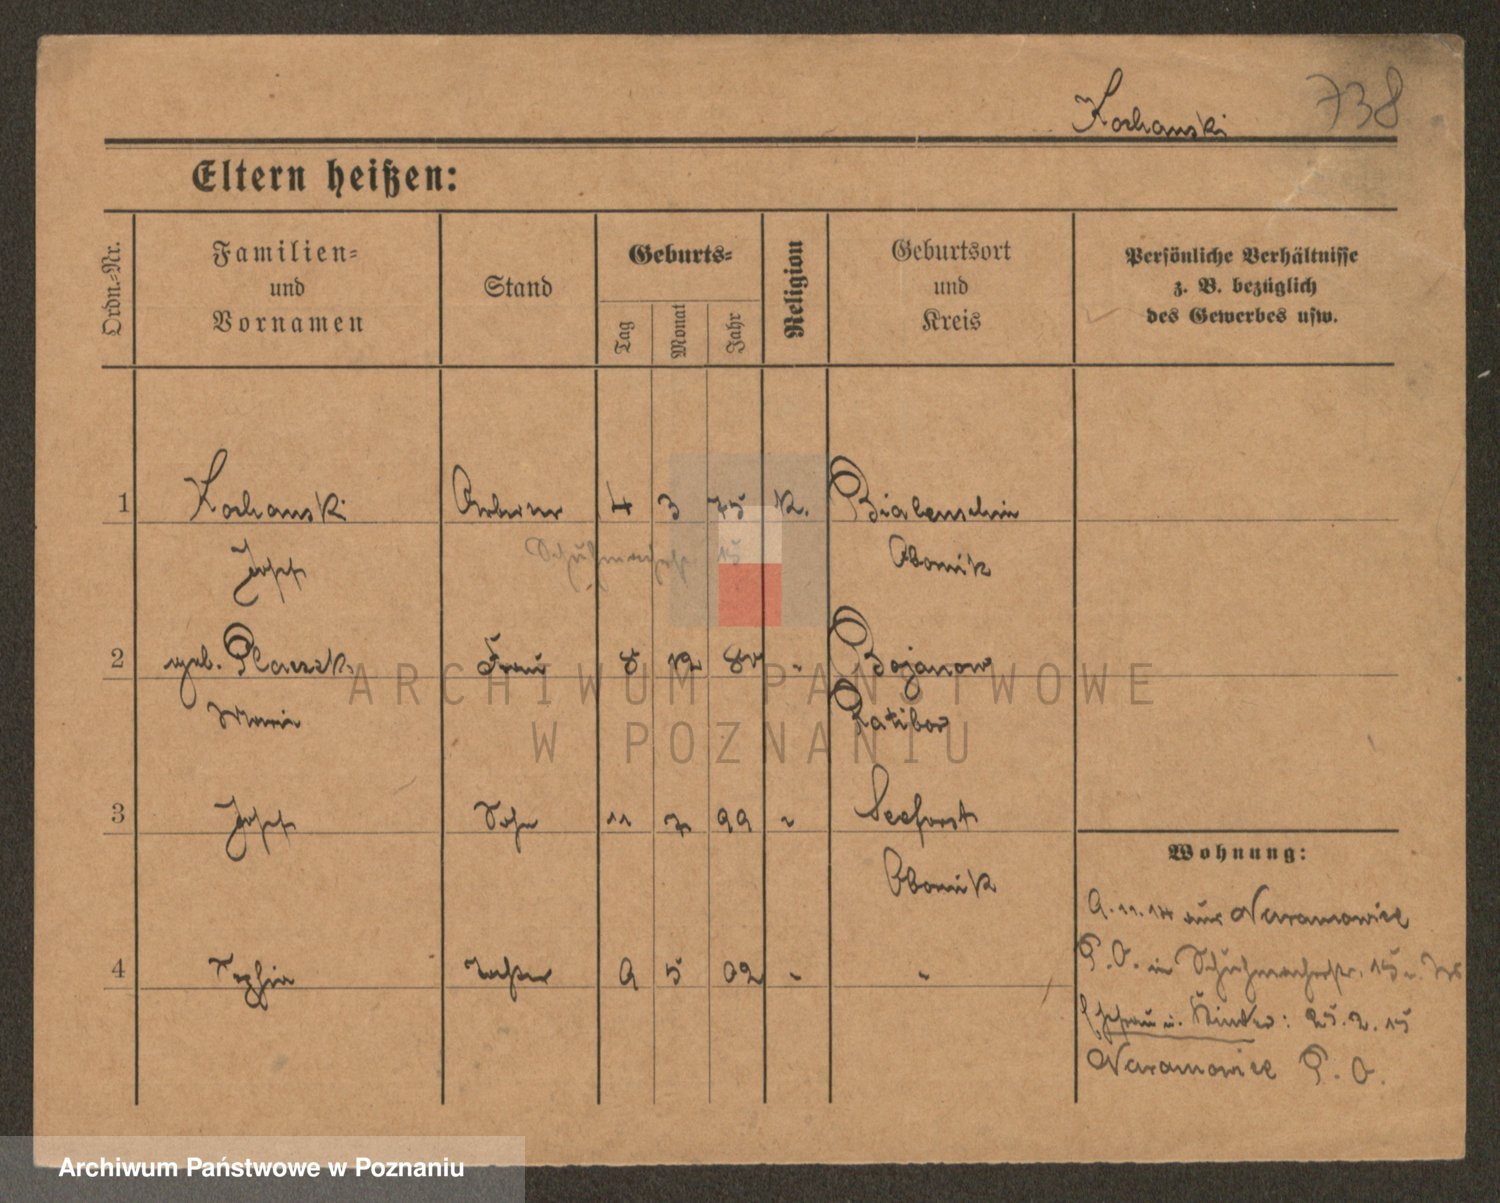 Kochanski 738
Eltern heißen:
Ordn.-Nr.
Familien-
und
Vornamen
Stand
Geburts-
Tag
Monat
Jahr
Religion
Geburtsort
und
Kreis
Persönliche Verhältnisse
z. B. bezüglich
des Gewerbes usw.
1 Kochanski Arbeiter 4 3 75 K. Bialenschin
Josef Obornik
2 geb. Frau 8 12 " Bojanow
Maria Ratibor
3 Josef Sohn 11 7 99 " Seeforst
Obornik
4 Sophia Tochter 9 5 02 " "
Wohnung:
9.11.14 aus Naramowice
P. O. in 15
Ehefrau u. Kinder: 25.2.15
Naramowice P. O.
ARCHIWUM PAŃSTWOWE
W POZNANIU
Archiwum Państwowe w Poznaniu